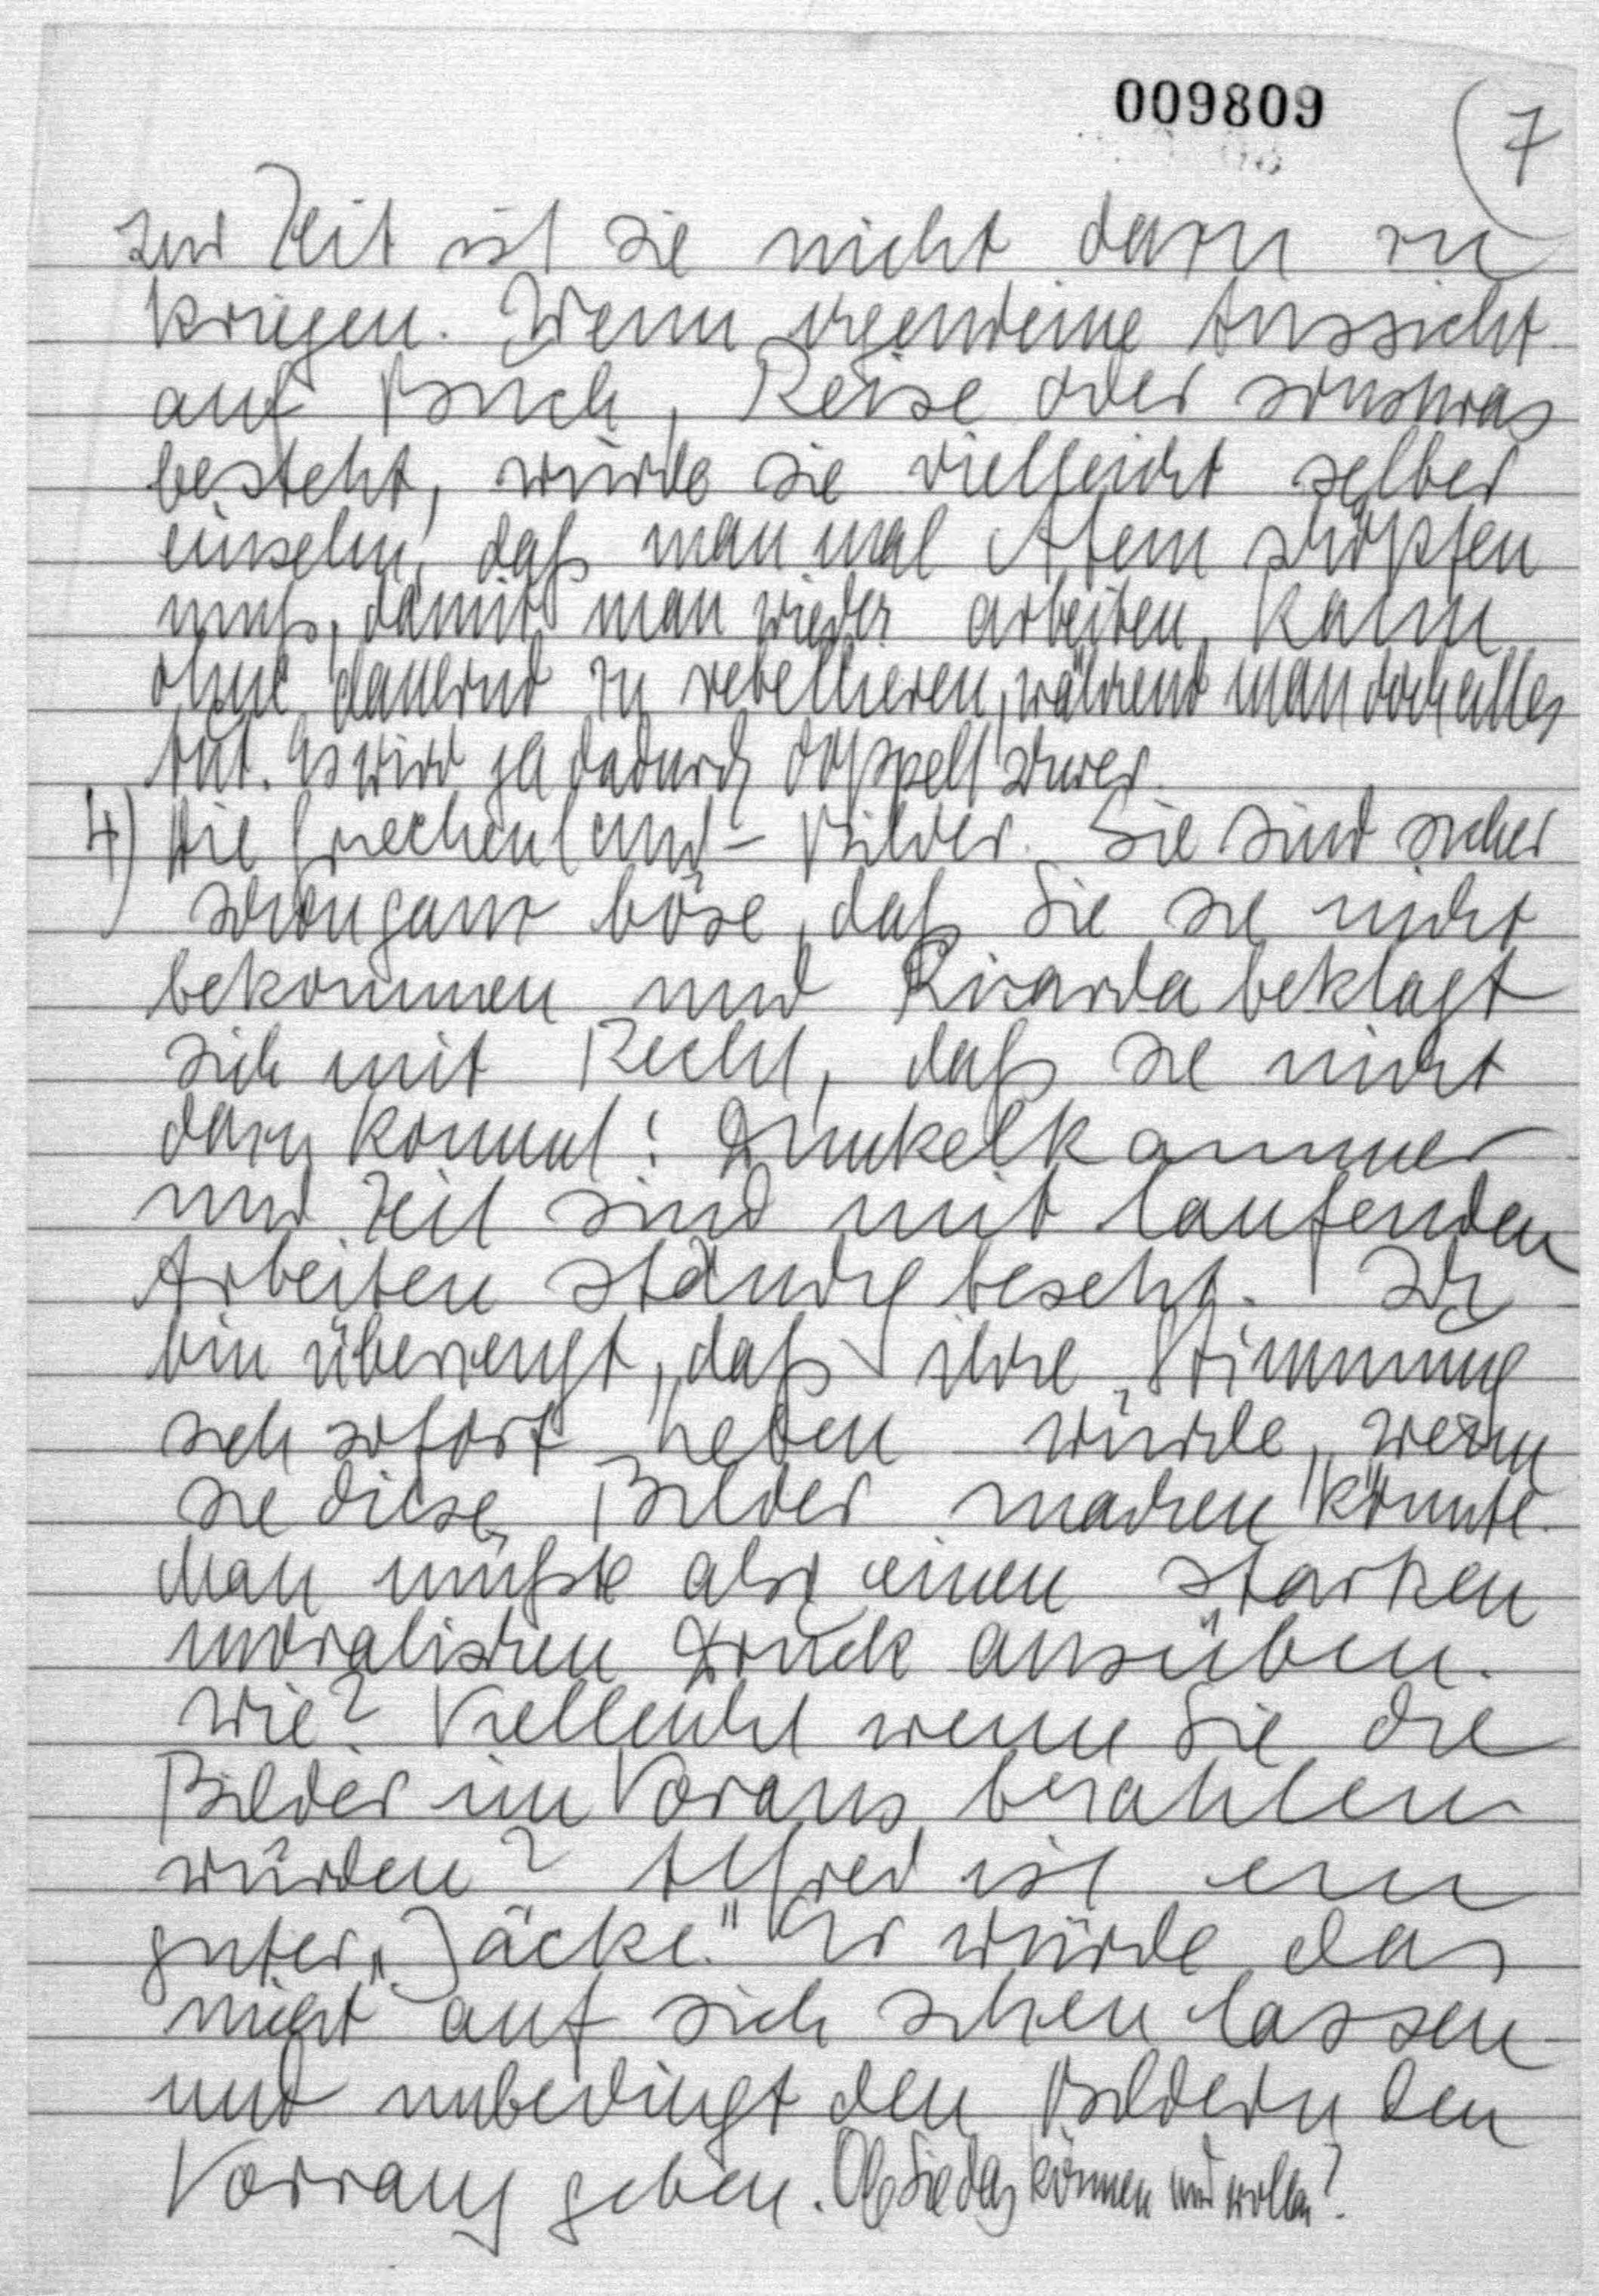 009809
7
zur Zeit ist sie nicht dazu zu
kriegen. Wenn irgendeine Aussicht
auf Buch, Reise oder sonstwas
besteht, würde sie vielleicht selber
einsehn, daß man mal Atem schöpfen
muß, damit man wieder arbeiten kann
ohne dauernd zu rebellieren, während man doch alles
tut. Es wird ja dadurch doppelt schwer.
4) Die Griechenland-Bilder. Sie sind sicher
schon ganz böse, daß Sie sie nicht
bekommen und Ricarda beklagt
sich mit Recht, daß sie nicht
dazu kommt: Dunkelkammer
und Zeit sind mit laufenden
Arbeiten ständig besetzt. Ich
bin überzeugt, daß ihre Stimmung
sich sofort heben würde, wenn
sie diese Bilder machen könnte.
Man müßte also einen starken
moralischen Druck ausüben.
Wie? Vielleicht wenn Sie die
Bilder im Voraus bezahlen
würden? Alfred ist ein
guter „Jäcke." Er würde das
nicht auf sich sitzen lassen
und unbedingt den Bildern den
Vorrang geben. Ob Sie das können und wollen?